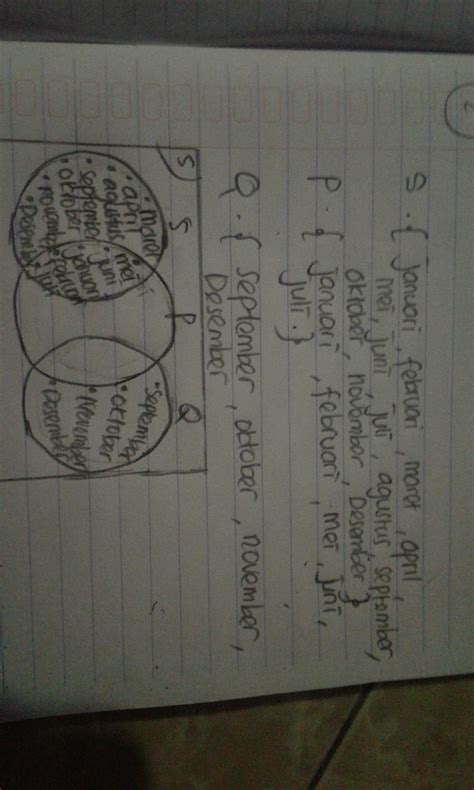 2
S . { januari, februari, maret, april,
mei, juni, juli, agustus, september,
oktober, november, Desember }
P . { januari, februari, mei, juni,
juli . }
Q . { september, oktober, november,
Desember
S
S
P
Q
• maret
• april
• agustus
• september
• oktober
• november
• Desember
• mei
• juni
• januari
• februari
• juli
• September
• oktober
• November
• Desember